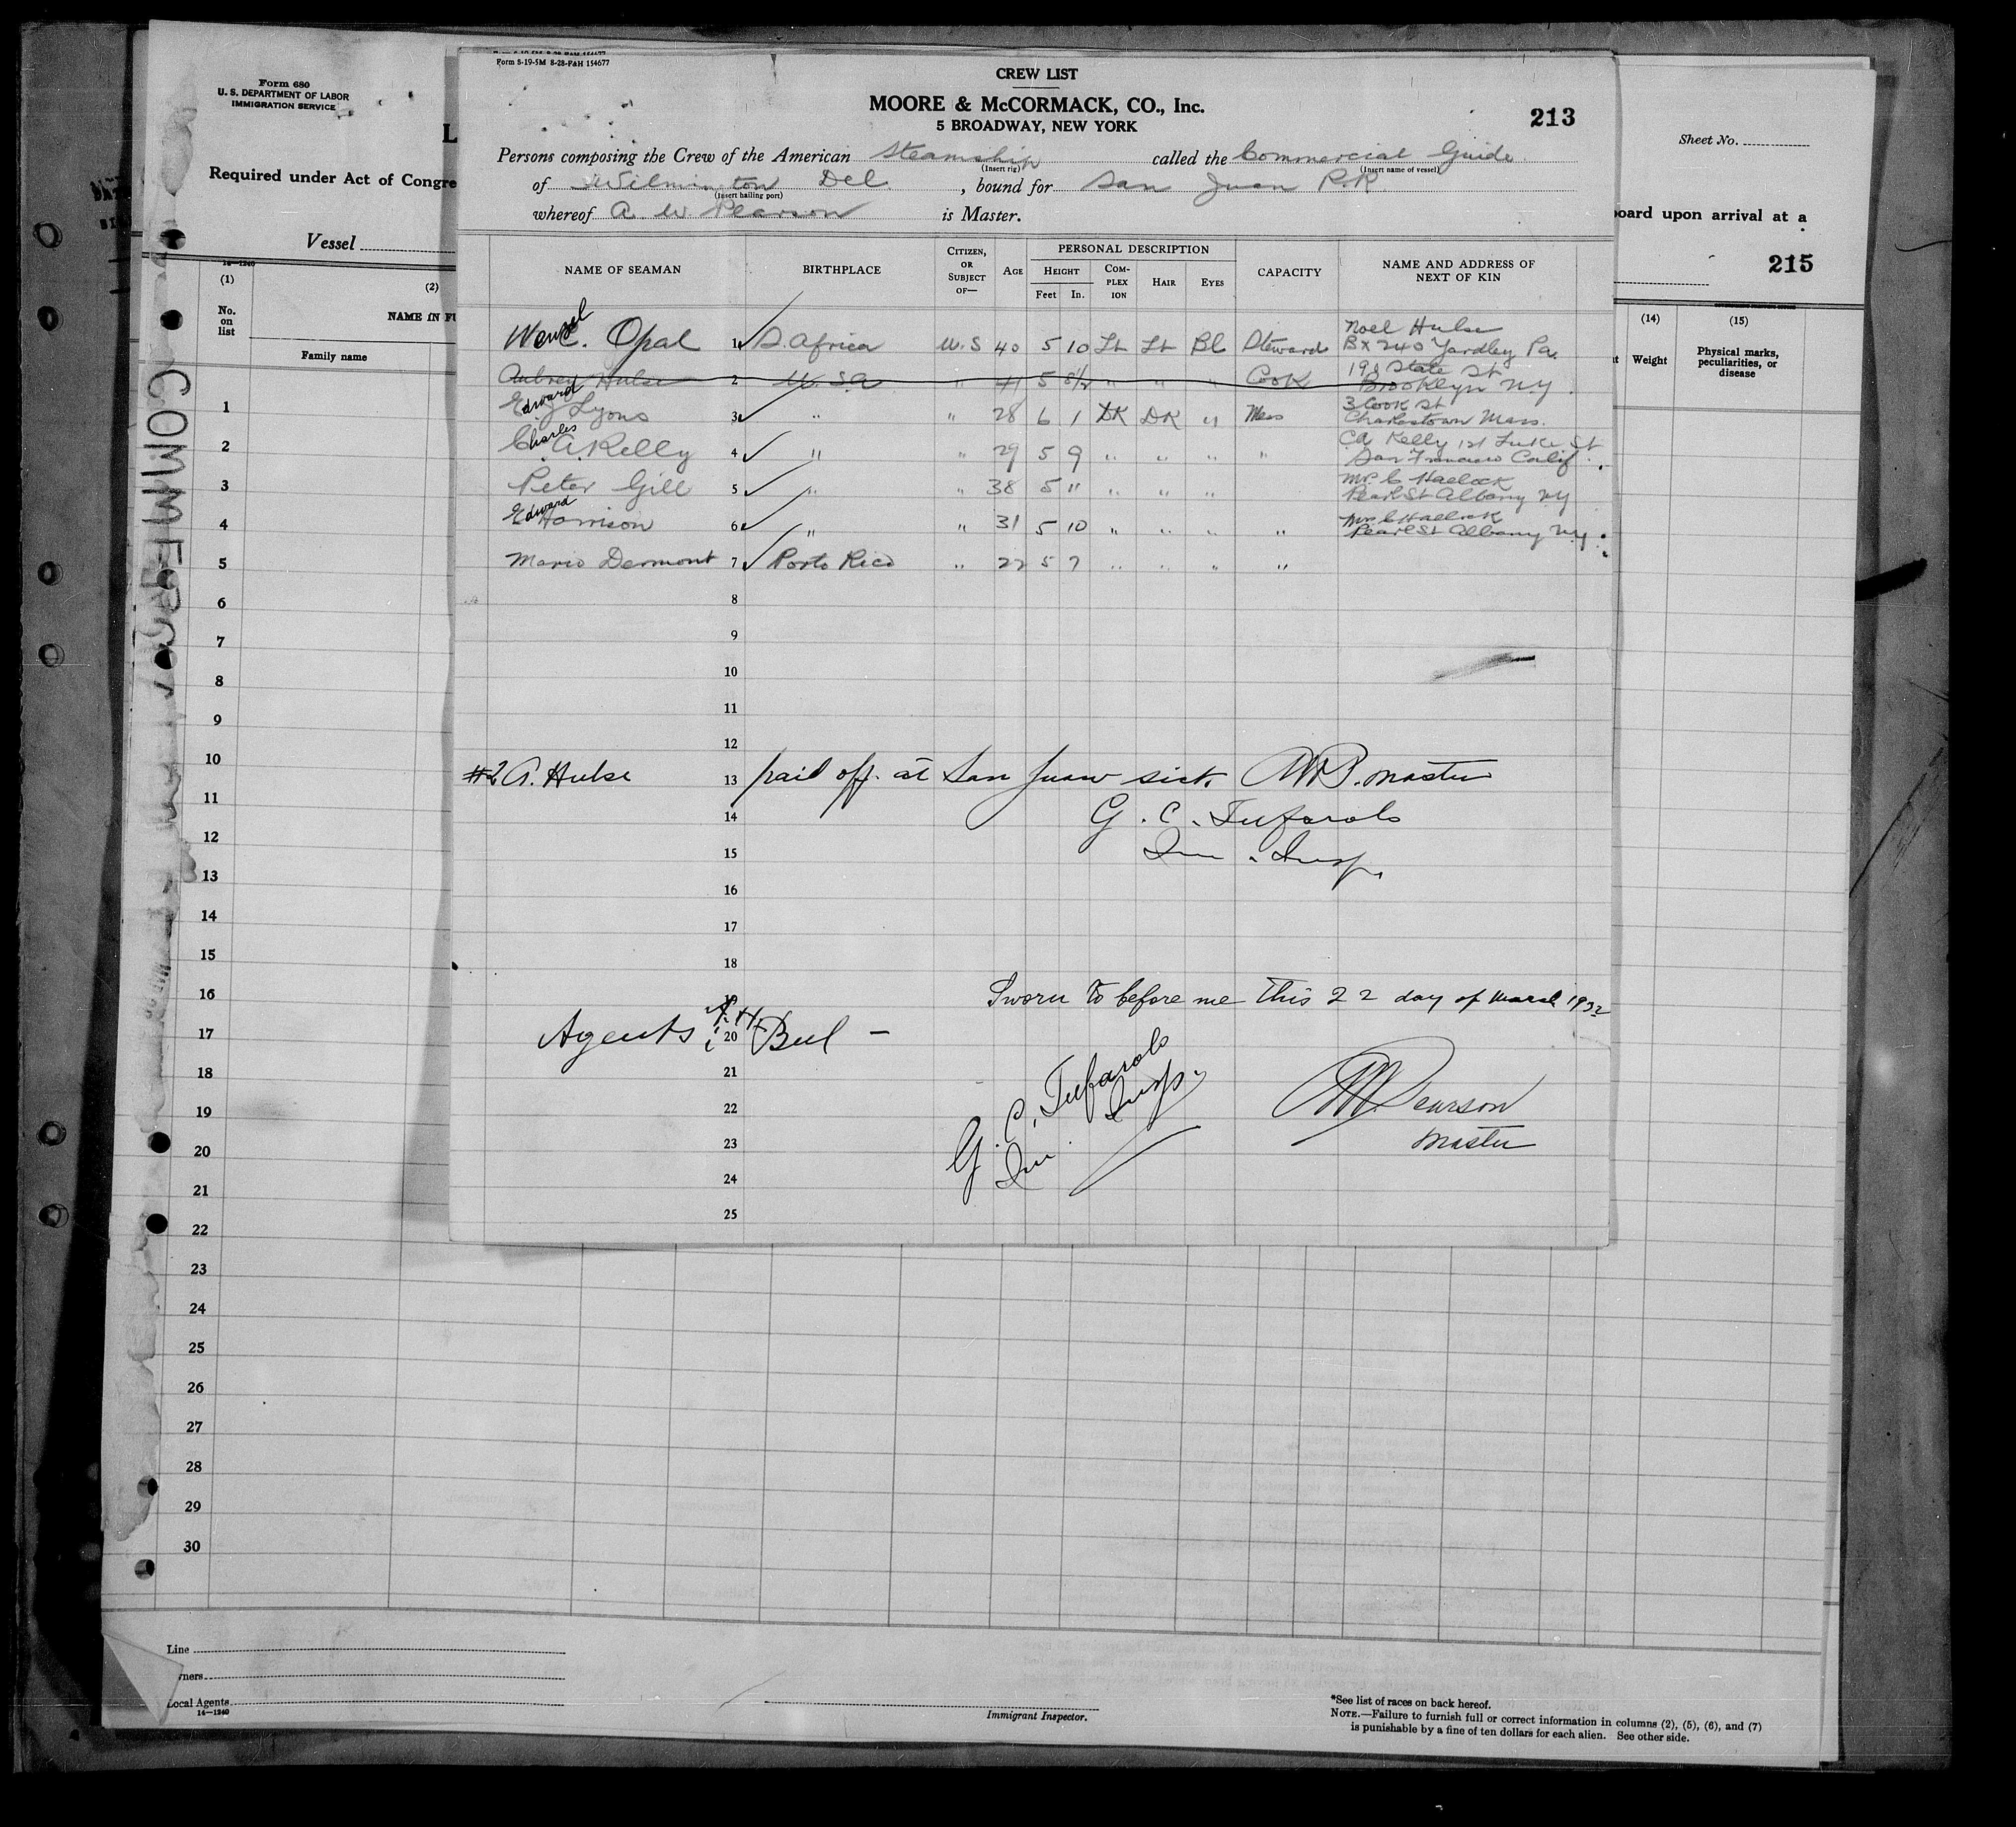 Form 680
U. S. DEPARTMENT OF LABOR
IMMIGRATION SERVICE
L
Required under Act of Congre
Vessel
14—1240
(1)
No.
on
list
(2)
NAME IN FU
Family name
Form 8-19-5M 8-28-FAH 154677
CREW LIST
MOORE & McCORMACK, CO., Inc.
5 BROADWAY, NEW YORK
213
Persons composing the Crew of the American Steamship called the Commercial Guide
(Insert rig) (Insert name of vessel)
of Wilmington Del , bound for San Juan P.R
(Insert hailing port)
whereof A. W Pearson is Master.
NAME OF SEAMAN BIRTHPLACE CITIZEN, OR SUBJECT OF— AGE PERSONAL DESCRIPTION CAPACITY NAME AND ADDRESS OF NEXT OF KIN
HEIGHT COM-PLEXION HAIR EYES
Feet In.
Opal 1 S. Africa U.S 40 5 10 Lt Lt Bl Steward Noel Hulse
Bx 240 Yardley Pa.
Aubrey Hulse 2 U.S.A " 41 5 8½ " " " Cook 198 State St
Brooklyn N.Y.
Edward J Lyons 3 " " 28 6 1 DK DK " Mess 3 Cook St
Charlestown Mass.
Charles A. Kelly 4 " " 29 5 9 " " " " CA Kelly 121 St
San Francisco Calif.
Peter Gill 5 " " 38 5 " " " "
Pearl St Albany NY
Edward Harrison 6 " " 31 5 10 " " " "
Pearl St Albany N.Y.
Mario Dermont 7 Porto Rico " 22 5 7 " " " "
8
9
10
11
12
#2 A. Hulse 13 paid off. at San Juan sick. AWP. master
14 G. C. Tufarolo
15 Im. Insp.
16
17
18
19 Sworn to before me this 22 day of March 1932
Agents: A. H. 20 Bul –
21
22
23
24
25
G. C. Tufarolo
Im. Insp.
AW Pearson
Master
Sheet No.
board upon arrival at a
215
(14) (15)
Weight Physical marks, peculiarities, or disease
COMMERCI
1
2
3
4
5
6
7
8
9
10
11
12
13
14
15
16
17
18
19
20
21
22
23
24
25
26
27
28
29
30
Line
wners
Local Agents
14—1240
Immigrant Inspector.
*See list of races on back hereof.
NOTE.—Failure to furnish full or correct information in columns (2), (5), (6), and (7)
is punishable by a fine of ten dollars for each alien. See other side.